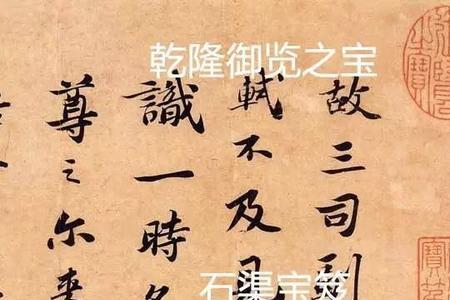 乾隆御览之宝
故三司
軾不及
識一時名
尊之尔来
石渠宝笈